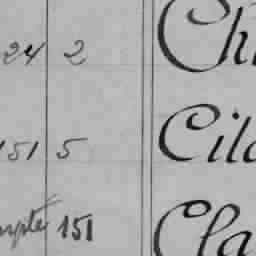 24 2 Ch
151 5 Cila
mpté 151 Cla